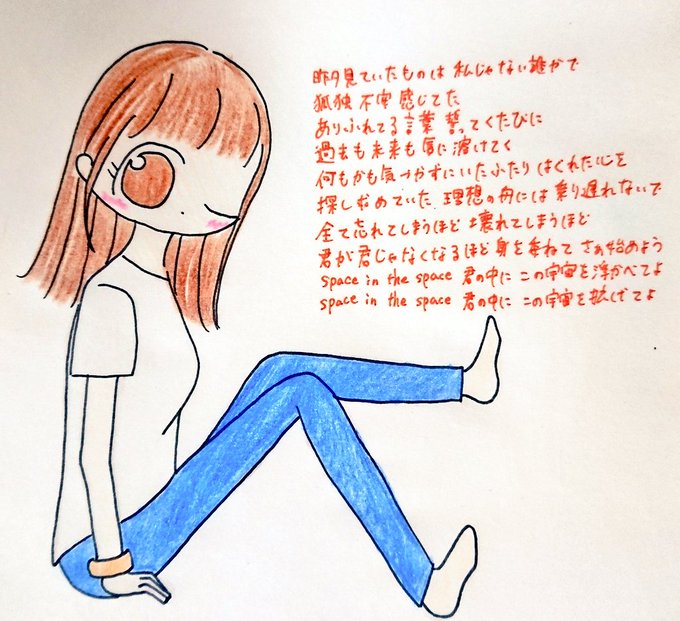 昨夕見ていたものは 私じゃない誰かで
孤独 不安 感じてた
ありふれてる言葉 誓ってくたびに
過去も未来も に溶けてく
何もかも気づかずにいたふたり はぐれた心を
探し求めていた 理想の舟には 乗り遅れないで
全て忘れてしまうほど 壊れてしまうほど
君が君じゃなくなるほど 身を委ねて さあ始めよう
space in the space 君の中に この宇宙を浮かべてよ
space in the space 君の中に この宇宙を拡げてよ